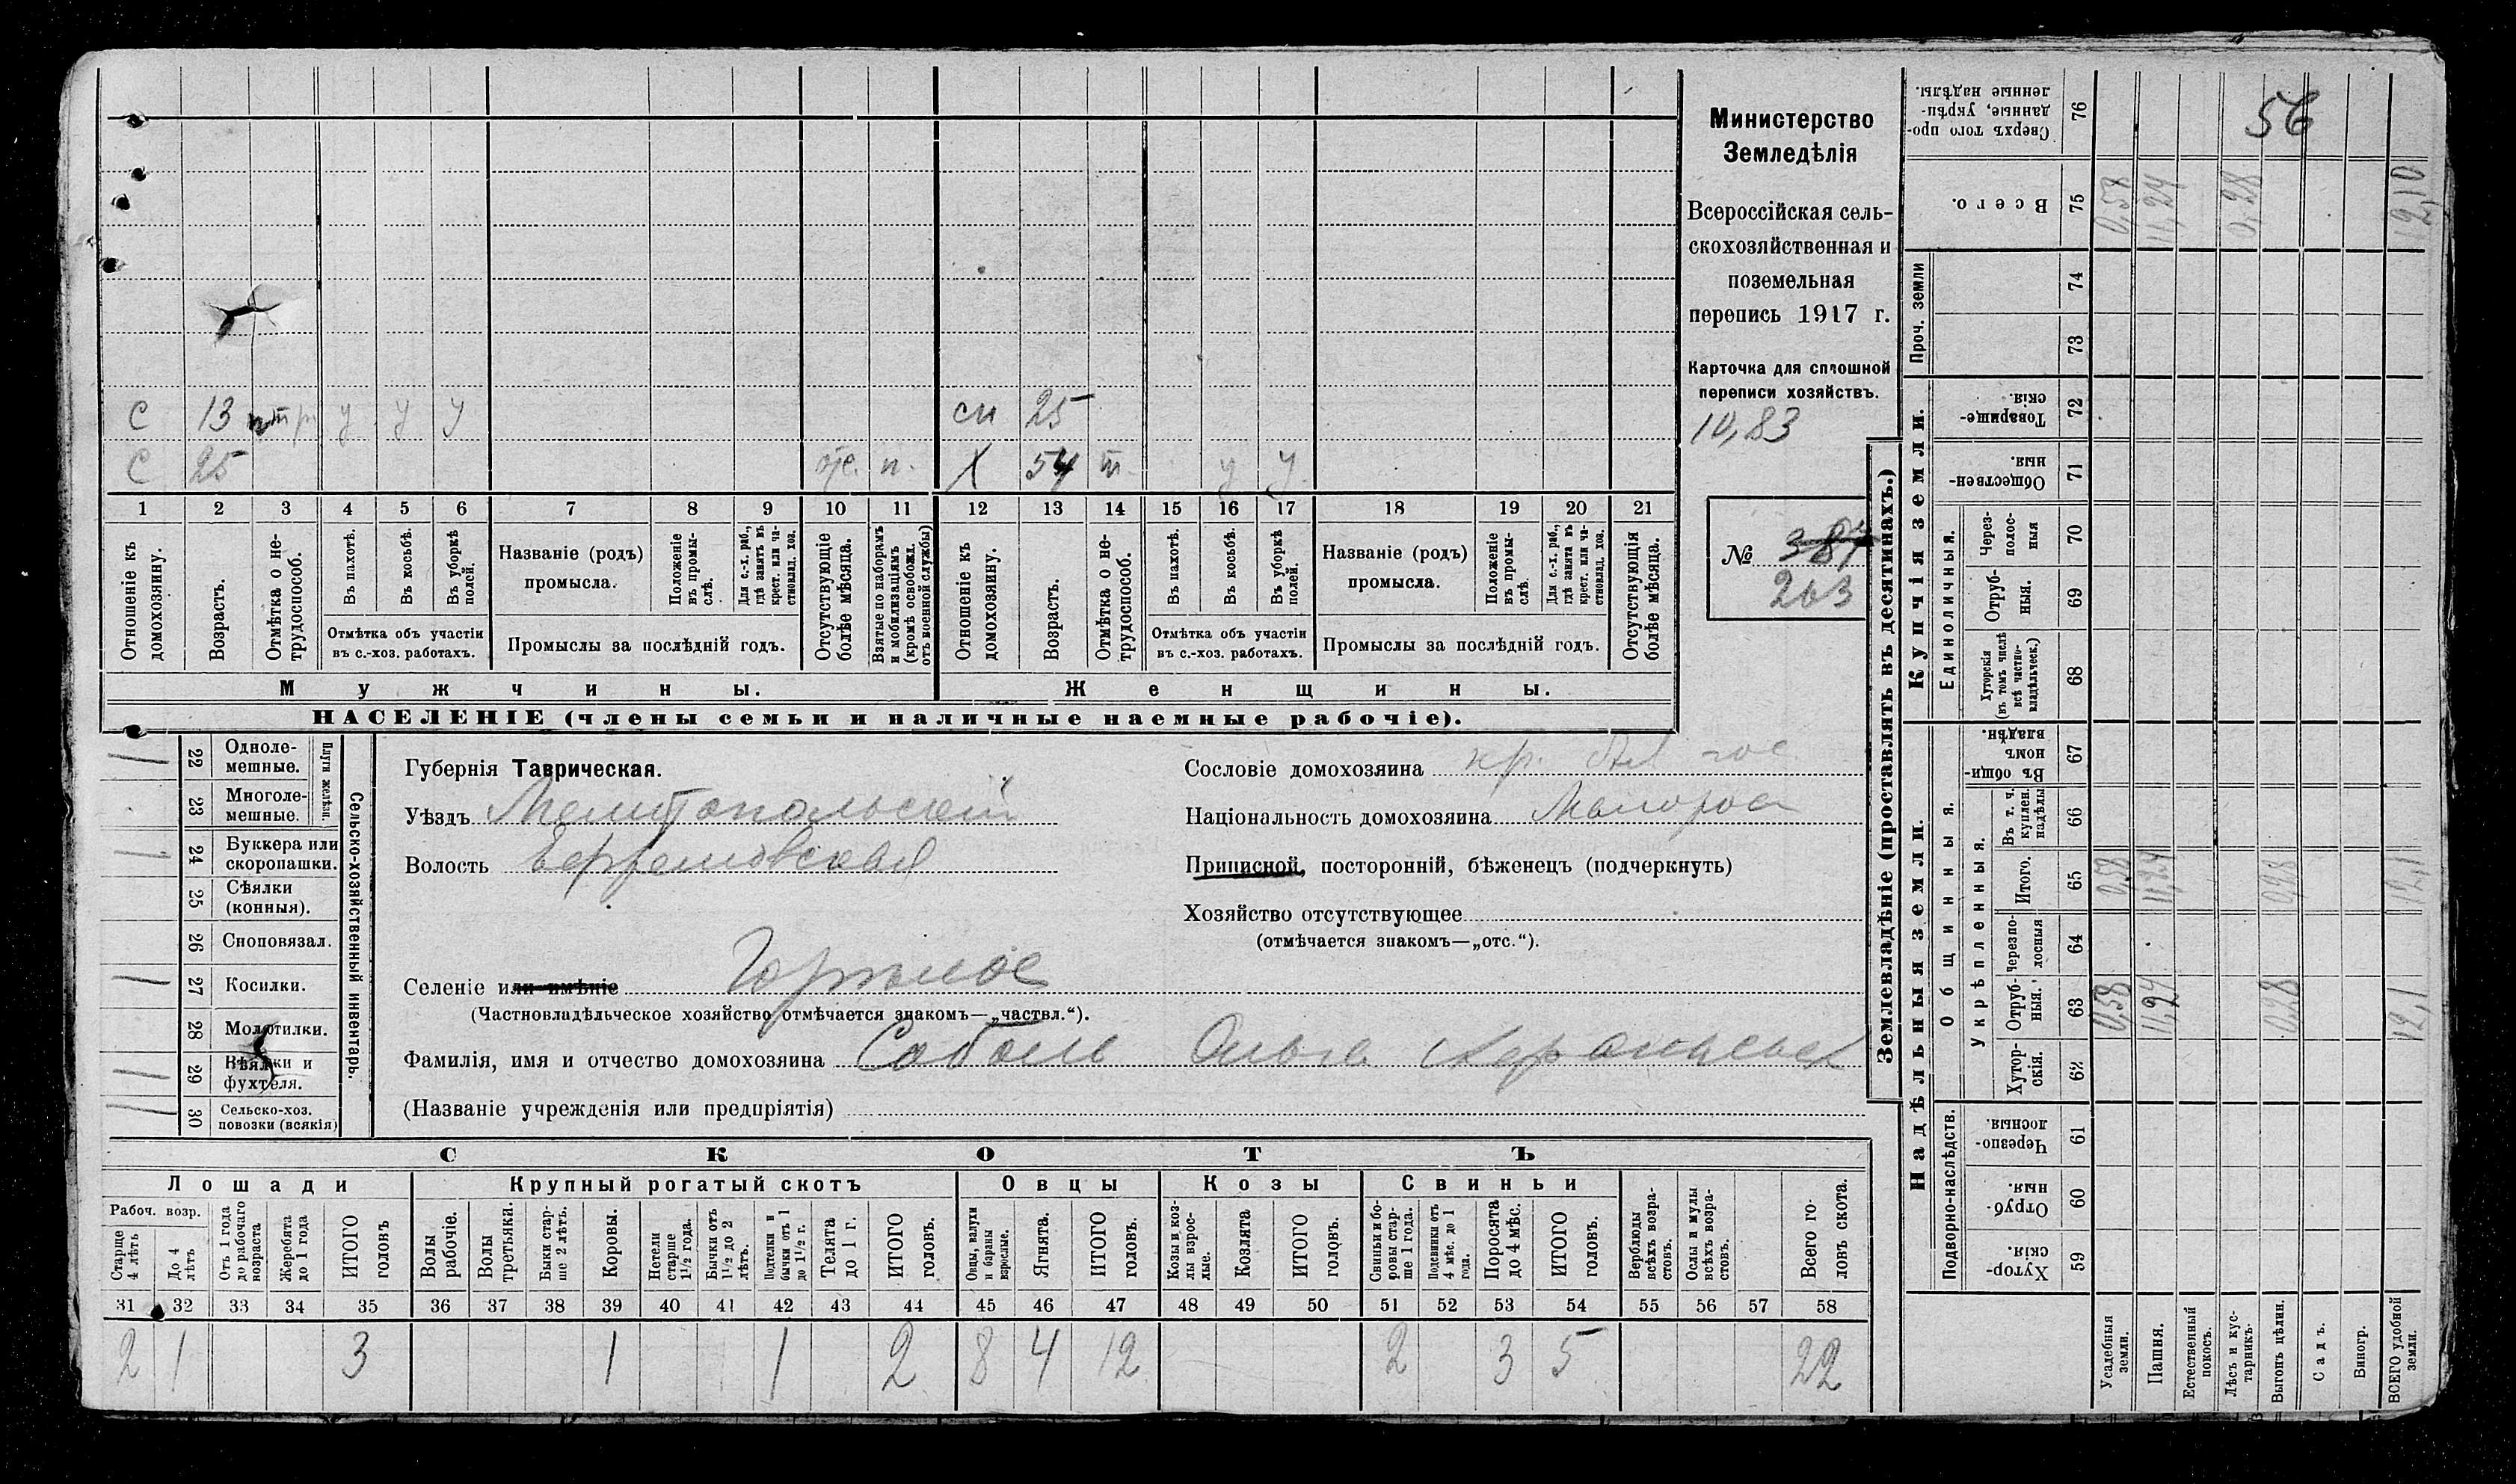 Министерство
Земледѣлія
Всероссійская сель-
скохозяйственная и
поземельная
перепись 1917 г.
Карточка для сплошной
переписи хозяйствъ.
10,83
№ 387
263
56
С 13 у у у сн 25
С 25 отс. п. Х 54 у у
1 2 3 4 5 6 7 8 9 10 11 12 13 14 15 16 17 18 19 20 21
Отношеніе къ домохозяину.
Возрастъ.
Отмѣтка о не-трудоспособ.
Въ пахотѣ.
Въ косьбѣ.
Въ уборкѣ полей.
Отмѣтка объ участіи
въ с.-хоз. работахъ.
Названіе (родъ)
промысла.
Положеніе въ промы-слѣ.
Для с.-х. раб., гдѣ занятъ въ крест. или ча-стновлад. хоз.
Промыслы за послѣдній годъ.
Отсутствующіе болѣе мѣсяца.
Взятые по наборамъ и мобилизаціямъ (кромѣ освобожд. отъ военной службы)
Отношеніе къ домохозяину.
Возрастъ.
Отмѣтка о не-трудоспособ.
Въ пахотѣ.
Въ косьбѣ.
Въ уборкѣ полей.
Отмѣтка объ участіи
въ с.-хоз. работахъ.
Названіе (родъ)
промысла.
Положеніе въ промы-слѣ.
Для с.-х. раб., гдѣ занята въ крест. или ча-стновлад. хоз.
Промыслы за послѣдній годъ.
Отсутствующія болѣе мѣсяца.
Мужчины.
Женщины.
НАСЕЛЕНІЕ (члены семьи и наличные наемные рабочіе).
Сельско-хозяйственный инвентарь.
Плуги желѣзн.
1 22 Одноле-мешные.
23 Многоле-мешные.
1 24 Буккера или скоропашки.
25 Сѣялки (конныя).
26 Сноповязал.
1 27 Косилки.
28 Молотилки.
1 29 Вѣялки и фухтеля.
1 30 Сельско-хоз. повозки (всякія)
Губернія Таврическая.
Уѣздъ Мелитопольскій
Волость
Селеніе или имѣніе Горѣлое
(Частновладѣльческое хозяйство отмѣчается знакомъ—„частвл.“).
Фамилія, имя и отчество домохозяина Соболь Ольга
(Названіе учрежденія или предпріятія)
Сословіе домохозяина кр.
Національность домохозяина Малорос
Приписной, посторонній, бѣженецъ (подчеркнуть)
Хозяйство отсутствующее
(отмѣчается знакомъ—„отс.“).
СКОТЪ
Лошади
Крупный рогатый скотъ
Овцы
Козы
Свиньи
Рабоч. возр.
Старше 4 лѣтъ
До 4 лѣтъ
Отъ 1 года до рабочаго возраста
Жеребята до 1 года
ИТОГО головъ
Волы рабочіе.
Волы третьяки.
Быки стар-ше 2 лѣтъ.
Коровы.
Нетели старше 1½ года.
Бычки отъ 1½ до 2 лѣтъ.
Подтелки и бычки отъ 1 до 1½ г.
Телята до 1 г.
ИТОГО головъ.
Овцы, валухи и бараны взрослые.
Ягнята.
ИТОГО головъ.
Козы и коз-лы взрос-лые.
Козлята
ИТОГО головъ.
Свиньи и бо-ровы стар-ше 1 года.
Подсвинки отъ 4 мѣс. до 1 года.
Поросята до 4 мѣс.
ИТОГО головъ.
Верблюды всѣхъ возра-стовъ.
Ослы и мулы всѣхъ возра-стовъ.
Всего го-ловъ скота.
31 32 33 34 35 36 37 38 39 40 41 42 43 44 45 46 47 48 49 50 51 52 53 54 55 56 57 58
2 1 3 1 1 2 8 4 12 2 3 5 22
Землевладѣніе (проставлять въ десятинахъ.)
Купчія земли.
Надѣльныя земли.
Сверхъ того про-данные, укрѣп-ленные надѣлы. 76
Всего. 75 0,58 11,24 0,28 12,10
Проч. земли
74
73
Товарище-скія. 72
Обществен-ныя. 71
Единоличныя.
Через-полос-ныя 70
Отруб-ныя. 69
Хуторскія (въ томъ числѣ всѣ частно-владѣльческ.) 68
Общинныя.
Въ общин-номъ владѣн. 67
Укрѣпленныя.
Въ т. ч. куплен. надѣлы 66
Итого. 65 0,58 11,24 0,28 12,1
Черезпо-лосныя 64
Отруб-ныя. 63 0,58 11,24 0,28 12,1
Хутор-скія. 62
Подворно-наслѣдств.
Черезпо-лосныя. 61
Отруб-ныя. 60
Хутор-скія. 59
Усадебныя земли.
Пашня.
Естественный покосъ.
Лѣсъ и кус-тарникъ.
Выгонъ цѣлин.
Садъ.
Виногр.
ВСЕГО удобной земли.